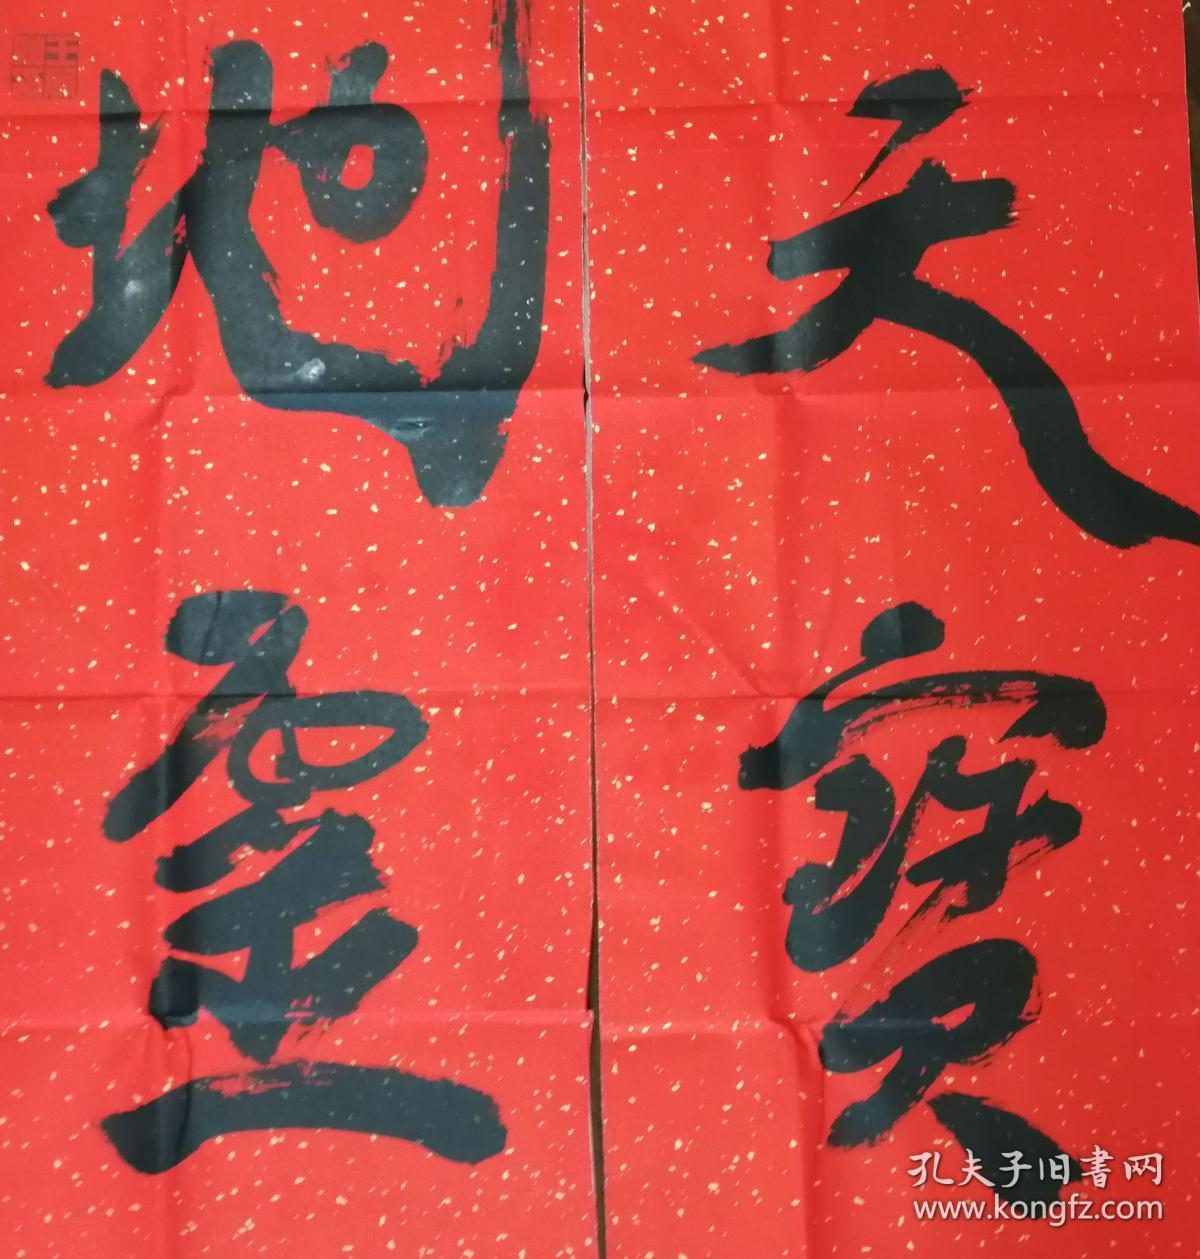 天寶
地靈
孔夫子旧書网
www.kongfz.com